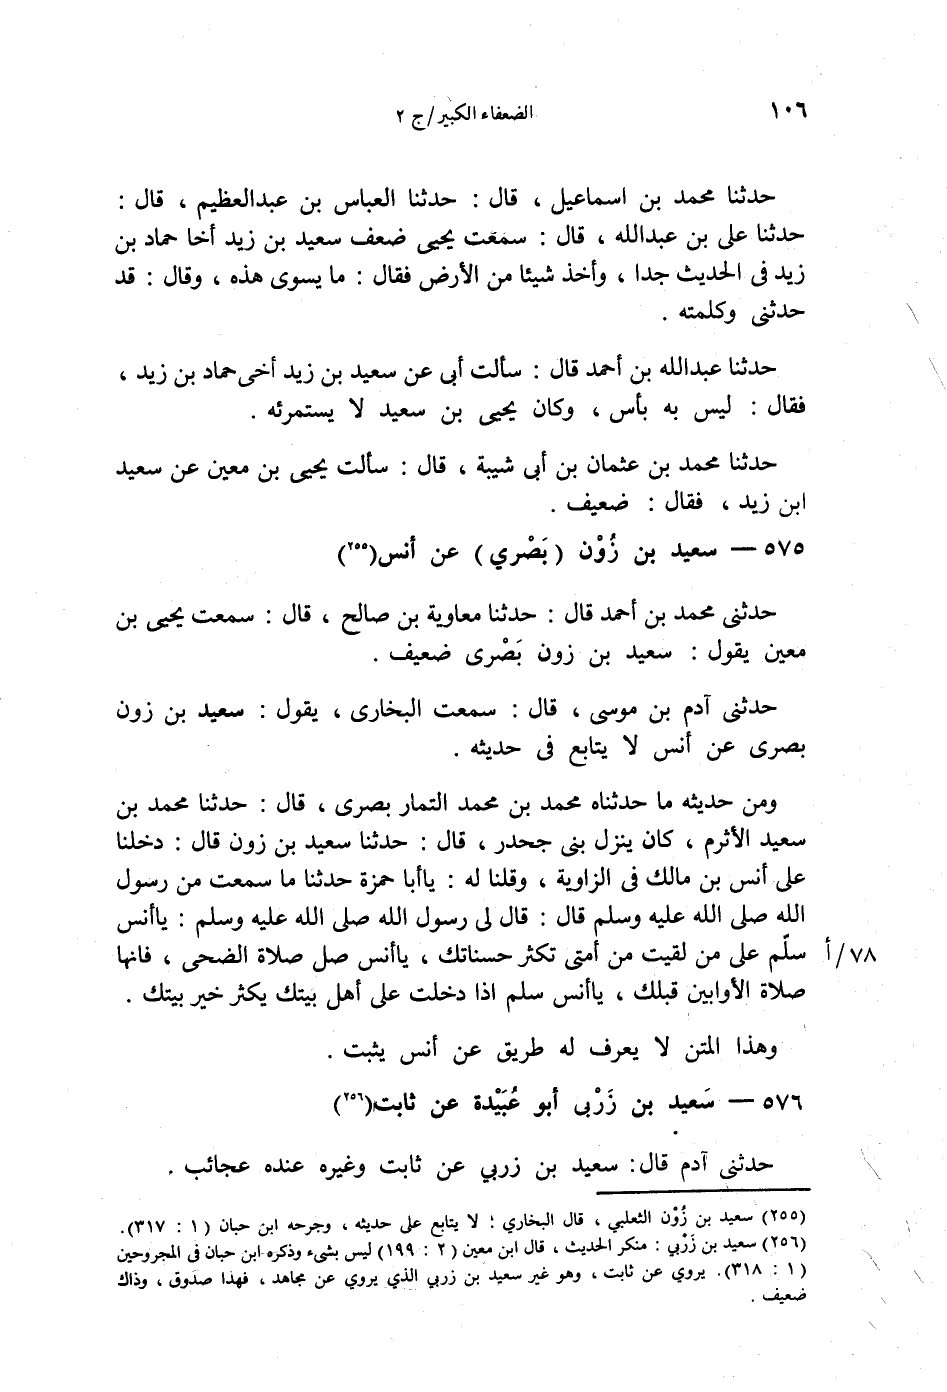 ١٠٦
الضعفاء الكبير/ج ٢
حدثنا محمد بن اسماعيل ، قال : حدثنا العباس بن عبدالعظيم ، قال :
حدثنا على بن عبدالله ، قال : سمعت يحيى ضعف سعيد بن زيد أخا حماد بن
زيد فى الحديث جدا ، وأخذ شيئا من الأرض فقال : ما يسوى هذه ، وقال : قد
حدثنى وكلمته .
حدثنا عبدالله بن أحمد قال : سألت أبى عن سعيد بن زيد أخى حماد بن زيد ،
فقال : ليس به بأس ، وكان يحيى بن سعيد لا يستمرئه .
حدثنا محمد بن عثمان بن أبى شيبة ، قال : سألت يحيى بن معين عن سعيد
ابن زيد ، فقال : ضعيف .
٥٧٥ — سعيد بن زُوْن ( بَصْري ) عن أنس(٢٥٥)
حدثنى محمد بن أحمد قال : حدثنا معاوية بن صالح ، قال : سمعت يحيى بن
معين يقول : سعيد بن زون بَصْرى ضعيف .
حدثنى آدم بن موسى ، قال : سمعت البخارى ، يقول : سعيد بن زون
بصرى عن أنس لا يتابع فى حديثه .
ومن حديثه ما حدثناه محمد بن محمد التمار بصرى ، قال : حدثنا محمد بن
سعيد الأثرم ، كان ينزل بنى جحدر ، قال : حدثنا سعيد بن زون قال : دخلنا
على أنس بن مالك فى الزاوية ، وقلنا له : ياأبا حمزة حدثنا ما سمعت من رسول
الله صلى الله عليه وسلم قال : قال لى رسول الله صلى الله عليه وسلم : ياأنس
سلّم على من لقيت من أمتى تكثر حسناتك ، ياأنس صل صلاة الضحى ، فانها
٧٨/أ
صلاة الأوابين قبلك ، ياأنس سلم اذا دخلت على أهل بيتك يكثر خير بيتك .
وهذا المتن لا يعرف له طريق عن أنس يثبت .
٥٧٦ — سَعيد بن زَرْبى أبو عُبَيْدة عن ثابت(٢٥٦)
حدثنى آدم قال: سعيد بن زربي عن ثابت وغيره عنده عجائب .
(٢٥٥) سعيد بن زُوْن الثعلبي ، قال البخاري : لا يتابع على حديثه ، وجرحه ابن حبان (١ : ٣١٧).
(٢٥٦) سعيد بن زَرْبي : منكر الحديث ، قال ابن معين (٢ : ١٩٩) ليس بشىء وذكره ابن حبان فى المجروحين
(١ : ٣١٨). يروي عن ثابت ، وهو غير سعيد بن زربي الذي يروي عن مجاهد ، فهذا صدوق ، وذاك
ضعيف .